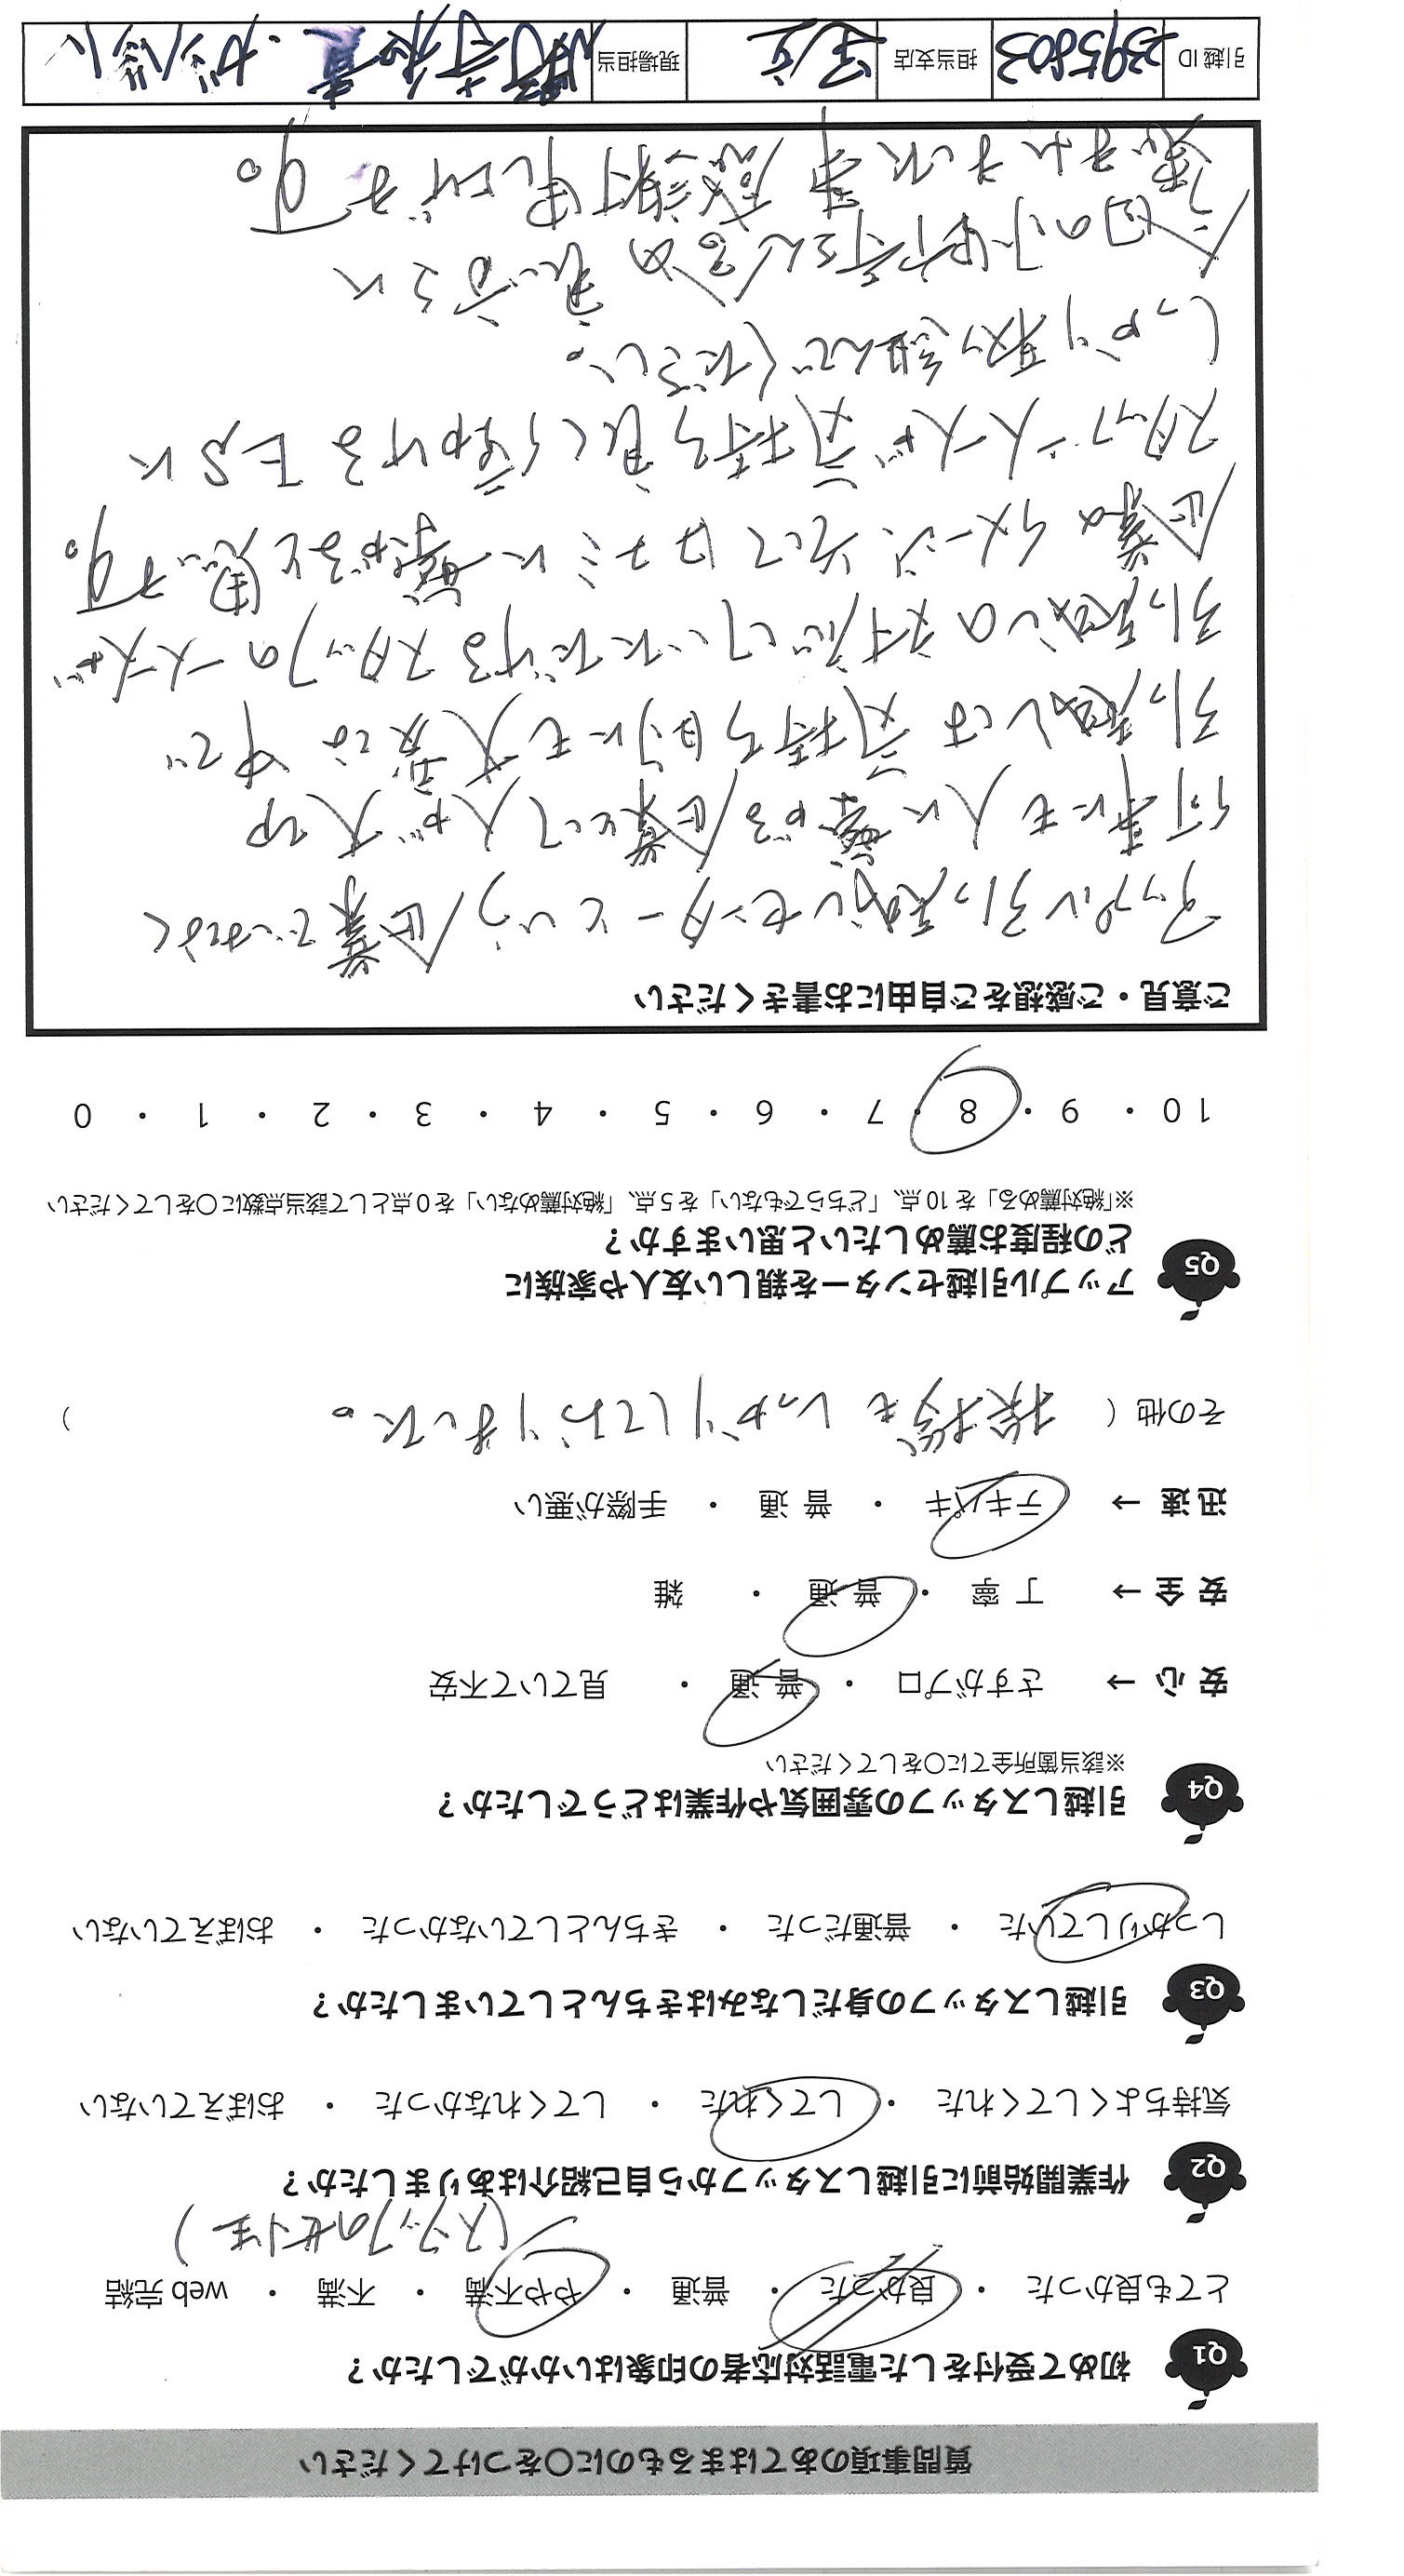 質問事項のあてはまるものに○をつけてください
Q1 初めて受付をした電話対応者の印象はいかがでしたか?
とても良かった ・ 良かった ・ 普通 ・ やや不満 ・ 不満 ・ web 完結
Q2 作業開始前に引越しスタッフから自己紹介はありましたか?
気持ちよくしてくれた ・ してくれた ・ してくれなかった ・ おぼえていない
Q3 引越しスタッフの身だしなみはきちんとしていましたか?
しっかりしていた ・ 普通だった ・ きちんとしていなかった ・ おぼえていない
Q4 引越しスタッフの雰囲気や作業はどうでしたか?
※該当箇所全てに○をしてください
安 心 → さすがプロ ・ 普 通 ・ 見ていて不安
安 全 → 丁 寧 ・ 普 通 ・ 雑
迅 速 → テキパキ ・ 普 通 ・ 手際が悪い
その他 ( 挨拶もしっかりしておりました。 )
Q5 アップル引越センターを親しい友人や家族に
どの程度お薦めしたいと思いますか?
※「絶対薦める」を 10 点、「どちらでもない」を 5 点、「絶対薦めない」を 0 点として該当点数に○をしてください
10 ・ 9 ・ 8 ・ 7 ・ 6 ・ 5 ・ 4 ・ 3 ・ 2 ・ 1 ・ 0
ご意見・ご感想をご自由にお書きください
アップル引っ越しセンターという企業ではなく
何事にも人に繋がる企業として人が大切
引っ越しは気持ち的にも大変な中で
引っ越しの対応していただけるスタッフの一人一人が
企業のイメージ、そして口コミに繋がると思います。
スタッフ一人一人が気持ち良く働けるESに
しっかり取り組んでください。
今回の小野寺さん含め若い方々に
来られた事 感謝申し上げます。
引越 ID 2395803 担当支店 足立 現場担当